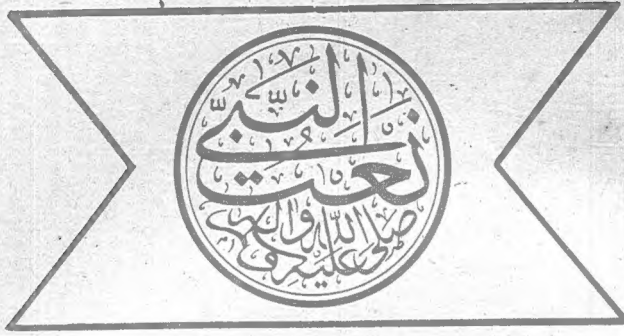 نعت النبی
صلی اللہ علیہ وآلہ وسلم